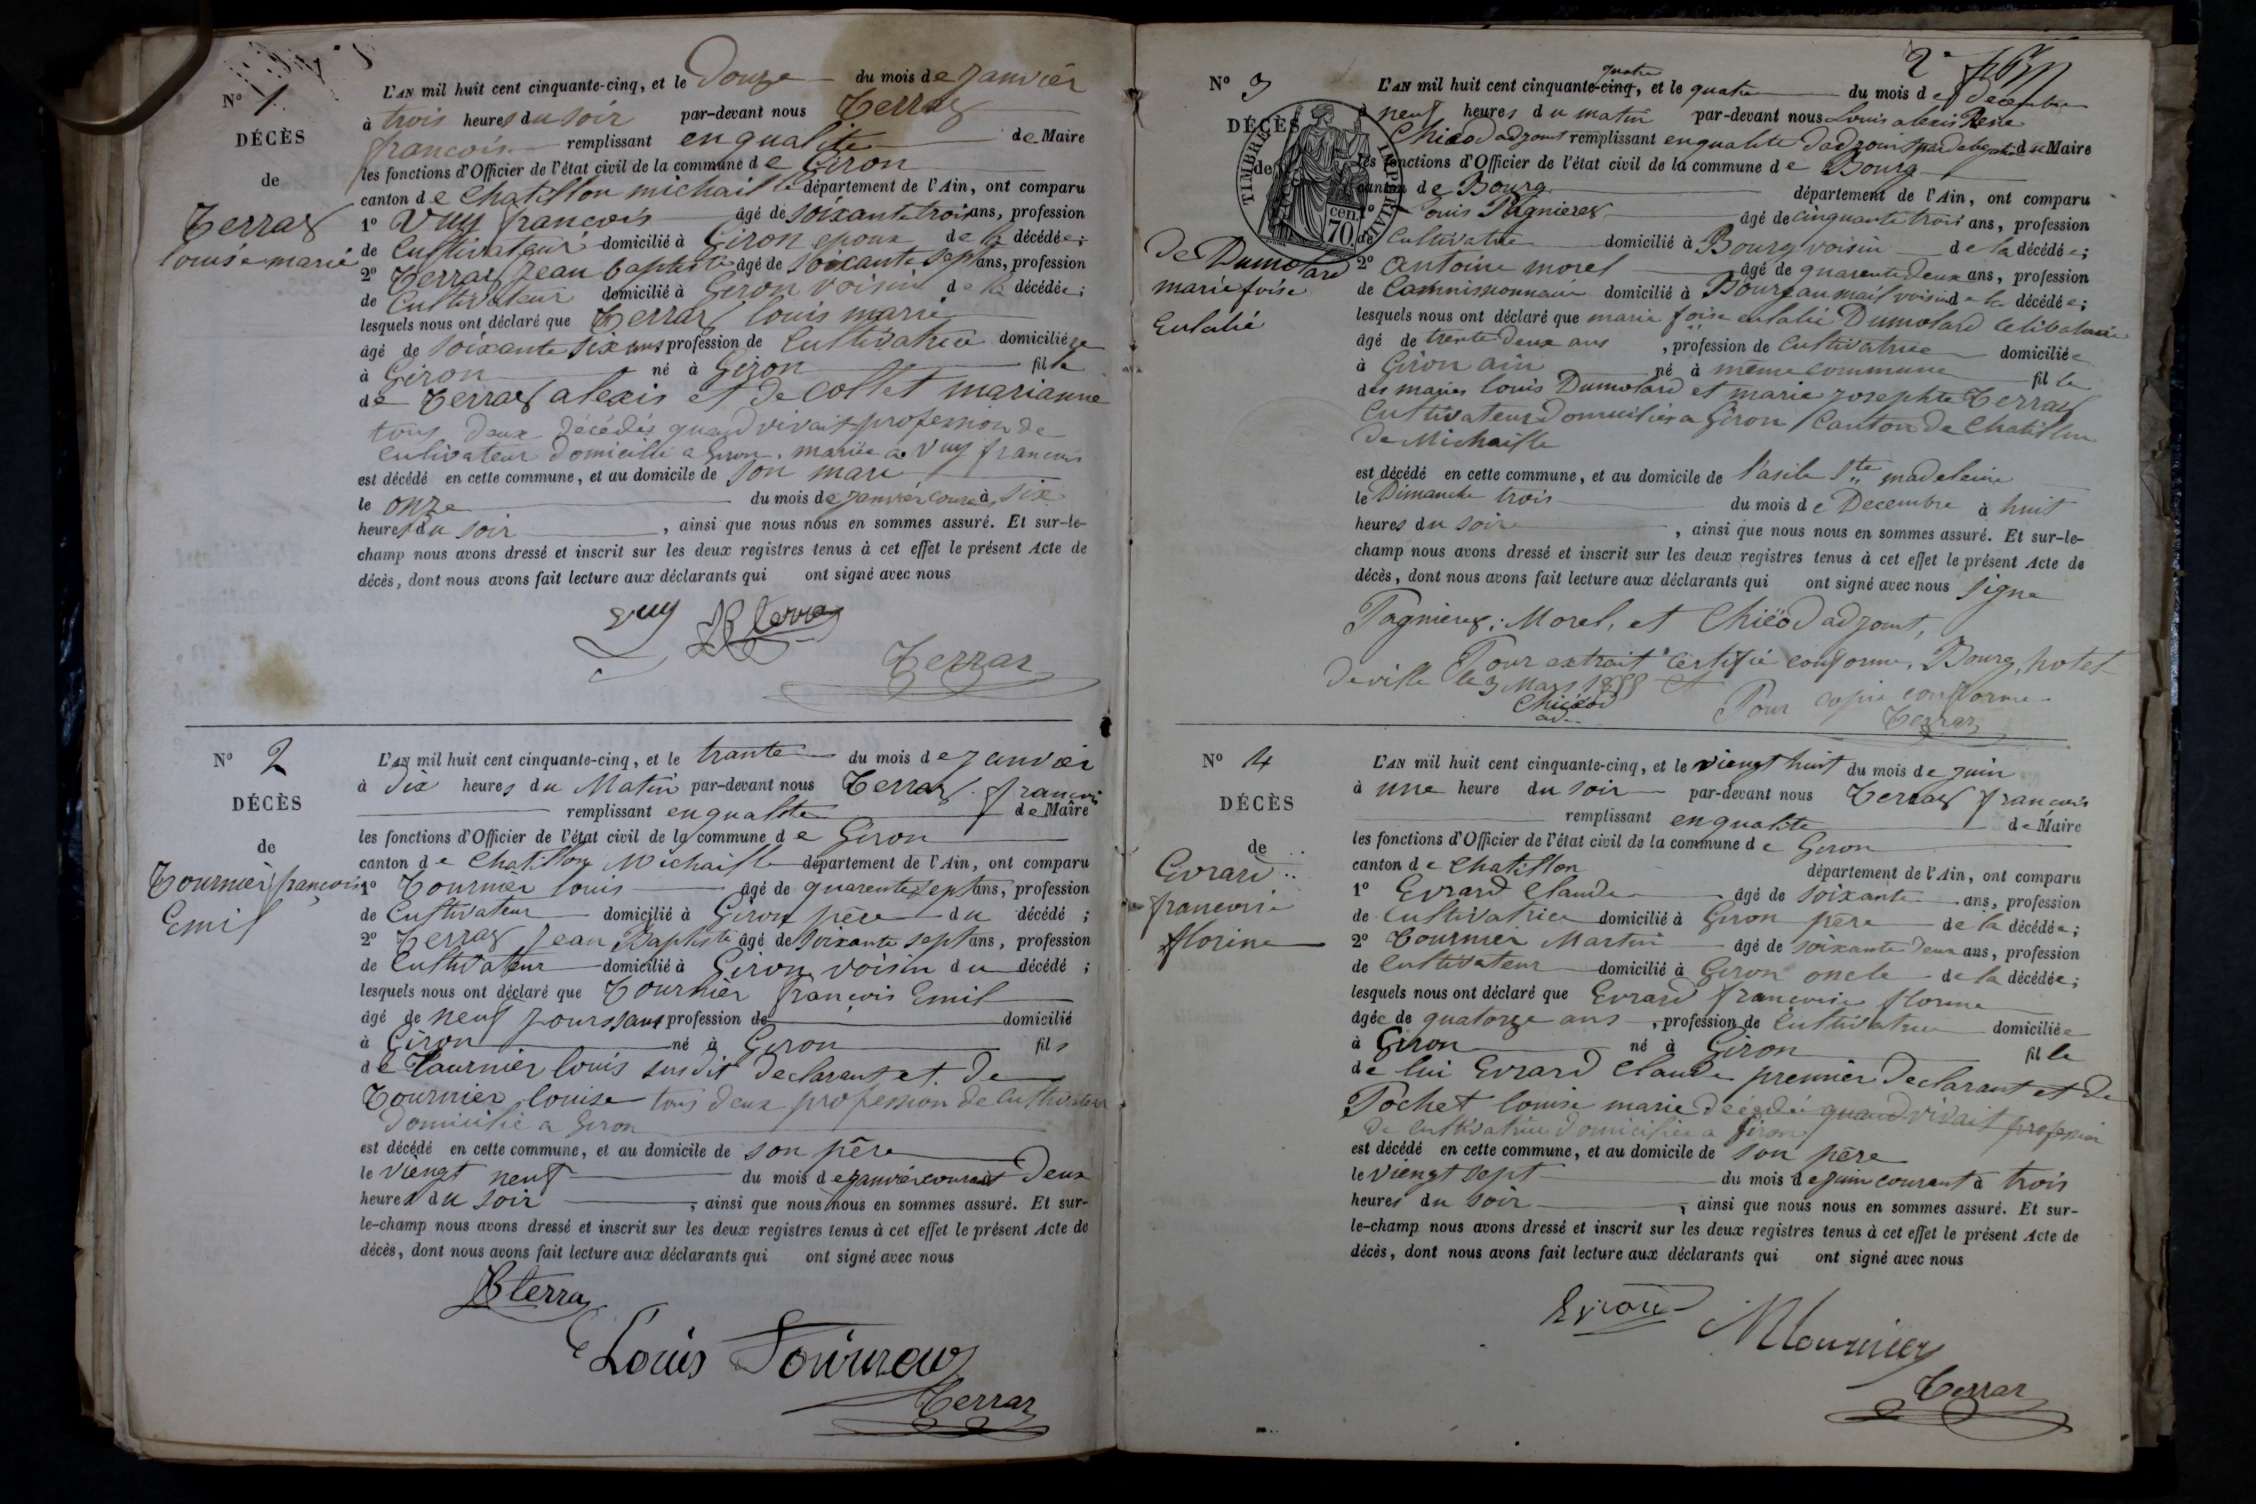 N° 1
DÉCÈS
de
Terraz
louise marie
L'AN mil huit cent cinquante-cinq, et le Douze du mois de janvier
à trois heures du soir par-devant nous Terraz
françois remplissant en qualité de Maire
les fonctions d'Officier de l'état civil de la commune de Giron
canton de Chatillon michaille département de l'Ain, ont comparu
1° Vuy françois âgé de soixante trois ans, profession
de Cultivateur domicilié à Giron epoux de la décédée;
2° Terraz jean baptiste âgé de soixante sept ans, profession
de Cultivateur domicilié à Giron voisin de la décédée;
lesquels nous ont déclaré que Terraz louis marie
âgé de soixante six ans profession de Cultivatrice domiciliée
à Giron né à Giron fille
de Terraz alexis et de Collet marianne
tous deux décédés quand vivait profession de
Cultivateur domicilié a Giron. mariée a Vuy francois
est décédé en cette commune, et au domicile de son mari
le onze du mois de janvier courant à six
heures du soir, ainsi que nous nous en sommes assuré. Et sur-le-
champ nous avons dressé et inscrit sur les deux registres tenus à cet effet le présent Acte de
décès, dont nous avons fait lecture aux déclarants qui ont signé avec nous
Vuy JB terraz
Terraz
N° 2
DÉCÈS
de
Tournier françois
Emil
L'AN mil huit cent cinquante-cinq, et le trante du mois de janvier
à dix heures du Matin par-devant nous Terraz françois
remplissant en qualite de Maire
les fonctions d'Officier de l'état civil de la commune de Giron
canton de Chatillon Michaille département de l'Ain, ont comparu
1° Tournier louis âgé de quarente sept ans, profession
de Cultivateur domicilié à Giron père du décédé;
2° Terraz Jean Baptiste âgé de soixante sept ans, profession
de Cultivateur domicilié à Giron voisin du décédé;
lesquels nous ont déclaré que Tournier françois Emil
âgé de neuf jours sans profession de domicilié
à Giron né à Giron fils
de Tournier louis susdit declarant et de
Tournier louise tous deux profession de Cultivateur
Domicilié a Giron
est décédé en cette commune, et au domicile de son père
le viengt neuf du mois de janvier courant Deux
heures du soir, ainsi que nous nous en sommes assuré. Et sur-
le-champ nous avons dressé et inscrit sur les deux registres tenus à cet effet le présent Acte de
décès, dont nous avons fait lecture aux déclarants qui ont signé avec nous
JB terraz
Louis Tournier
Terraz
2e
N° 3
DÉCÈS
de
De Dumolard
marie foise
Eulalie
TIMBRE IMPERIAL
70 cen.
L'AN mil huit cent cinquante-cinq quatre, et le quatre du mois de Decembre
à neuf heures du matin par-devant nous Louis alexis René
Chicod adjoint remplissant en qualité d'adjoint par delegation de Maire
les fonctions d'Officier de l'état civil de la commune de Bourg
canton de Bourg département de l'Ain, ont comparu
1° Louis Pagnieres âgé de cinquante trois ans, profession
de Cultivateur domicilié à Bourg voisin de la décédée;
2° Antoine morel âgé de quarente deux ans, profession
de Commissionnaire domicilié à Bourg au mail voisin de la décédée;
lesquels nous ont déclaré que marie foise eulalie Dumolard celibataire
âgé de trente deux ans, profession de Cultivatrice domiciliée
à Giron ain né à même commune fille
des mariés louis Dumolard et marie josephte Terraz
Cultivateurs Domiciliés a Giron Canton de Chatillon
de Michaille
est décédé en cette commune, et au domicile de l'asile Ste madeleine
le Dimanche trois du mois de Decembre à huit
heures du soir, ainsi que nous nous en sommes assuré. Et sur-le-
champ nous avons dressé et inscrit sur les deux registres tenus à cet effet le présent Acte de
décès, dont nous avons fait lecture aux déclarants qui ont signé avec nous signe
Pagnieres, Morel, et Chicod adjoint,
Pour extrait certifié conforme, Bourg, hotel
de ville le 3 Mars 1855
Chicod
ad.
Pour copie conforme
Terraz
N° 4
DÉCÈS
de
Evrard
francoise
florine
L'AN mil huit cent cinquante-cinq, et le viengt huit du mois de juin
à une heure du soir par-devant nous Terraz francois
remplissant en qualite de Maire
les fonctions d'Officier de l'état civil de la commune de Giron
canton de Chatillon département de l'Ain, ont comparu
1° Evrard Claude âgé de soixante ans, profession
de Cultivatrice domicilié à Giron père de la décédée;
2° Tournier Martin âgé de soixante deux ans, profession
de Cultivateur domicilié à Giron oncle de la décédée;
lesquels nous ont déclaré que Evrard francoise florine
âgée de quatorze ans, profession de Cultivatrice domiciliée
à Giron né à Giron fille
de lui Evrard Claude premier Declarant et de
Pochet louise marie décédée quand vivait profession
de Cultivatrice domiciliée a Giron
est décédé en cette commune, et au domicile de son père
le viengt sept du mois de juin courant à trois
heures du soir, ainsi que nous nous en sommes assuré. Et sur-
le-champ nous avons dressé et inscrit sur les deux registres tenus à cet effet le présent Acte de
décès, dont nous avons fait lecture aux déclarants qui ont signé avec nous
Evrard
M tournier
Terraz